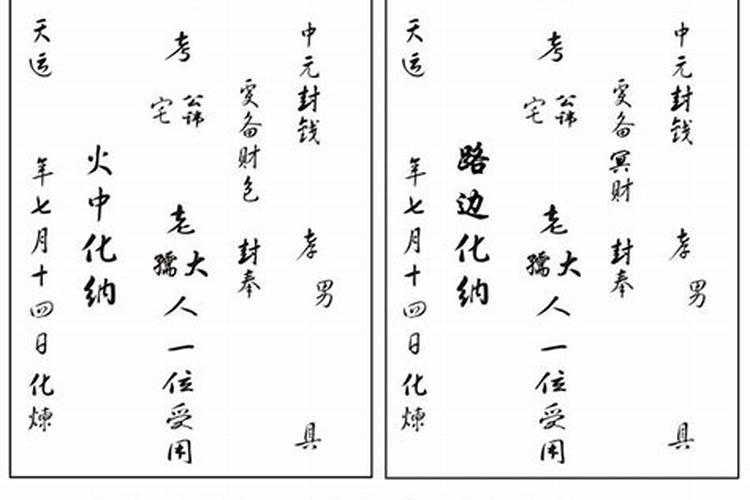 中元封钱 孝男 具
爰备财包 封奉
考 公讳 宅 老大孺人一位受用
火中化纳
天运 年七月十四日化煉
中元封钱 孝男 具
爰备冥财 封奉
考 公讳 宅 老大孺人一位受用
路边化纳
天运 年七月十四日化煉